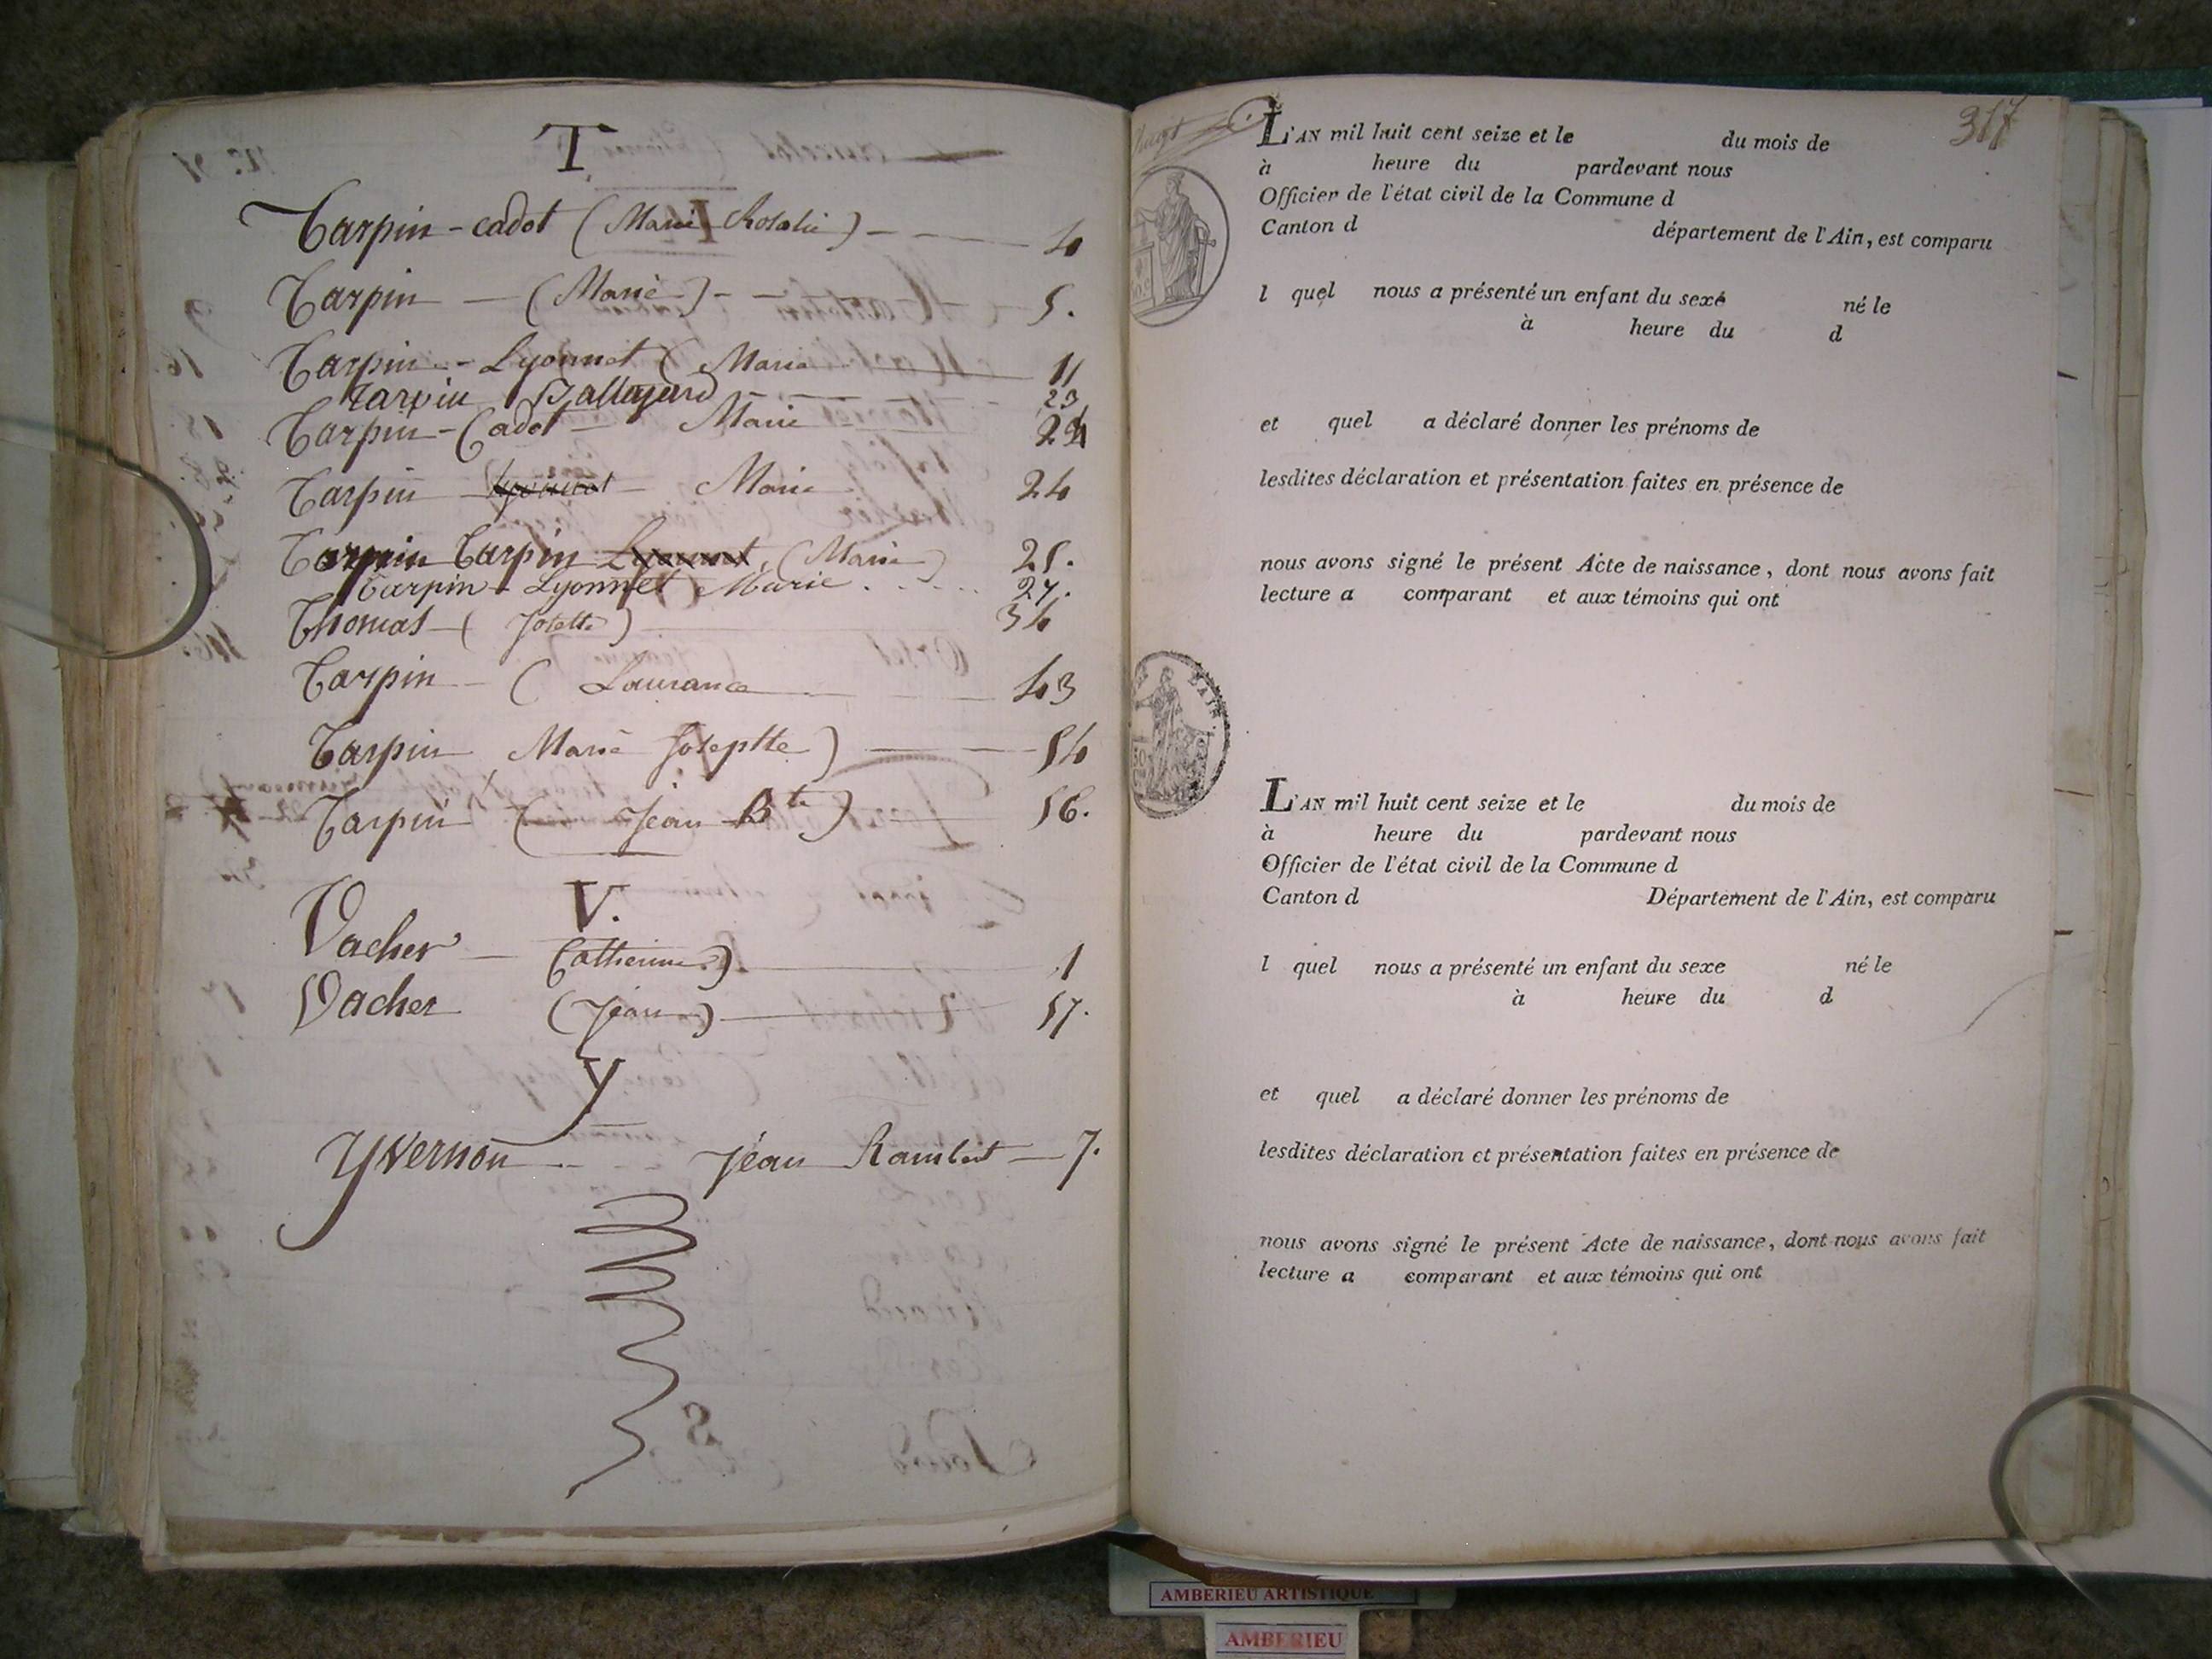 T
Tarpin - cadot (Marie Rosalie) - 4
Tarpin - (Marie) - 5.
Tarpin - Lyonnet (Marie 11
Tarpin Ballayard 23
Tarpin - Cadot - Marie
Tarpin Lyonnet Marie 24
Tarpin Tarpin Lyonnet (Marie) 25.
Tarpin - Lyonnet (Marie 27.
Thomas - (Josette) 34
Tarpin - (Laurance 43
Tarpin Marie Josephte) 54
Tarpin (Jean Bte) 56.
V.
Vacher - Catherine) 1
Vacher (Jean) 57.
Y
Yvernon Jean Rambert - 7.
317
L'AN mil huit cent seize et le du mois de
à heure du pardevant nous
Officier de l'état civil de la Commune d
Canton d département de l'Ain, est comparu
l quel nous a présenté un enfant du sexe né le
à heure du d
et quel a déclaré donner les prénoms de
lesdites déclaration et présentation faites en présence de
nous avons signé le présent Acte de naissance, dont nous avons fait
lecture a comparant et aux témoins qui ont
L'AN mil huit cent seize et le du mois de
à heure du pardevant nous
Officier de l'état civil de la Commune d
Canton d Département de l'Ain, est comparu
l quel nous a présenté un enfant du sexe né le
à heure du d
et quel a déclaré donner les prénoms de
lesdites déclaration et présentation faites en présence de
nous avons signé le présent Acte de naissance, dont nous avons fait
lecture a comparant et aux témoins qui ont
AMBERIEU ARTISTIQUE
AMBERIEU